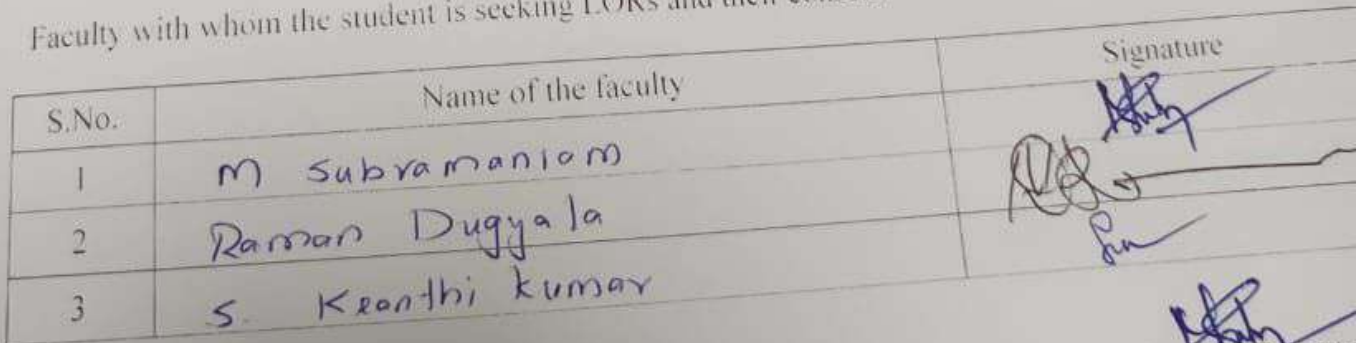 Faculty with whom the student is seeking LORs and their
S.No. Name of the faculty Signature
1 M Subramaniam
2 Raman Dugyala
3 S. Kranthi kumar